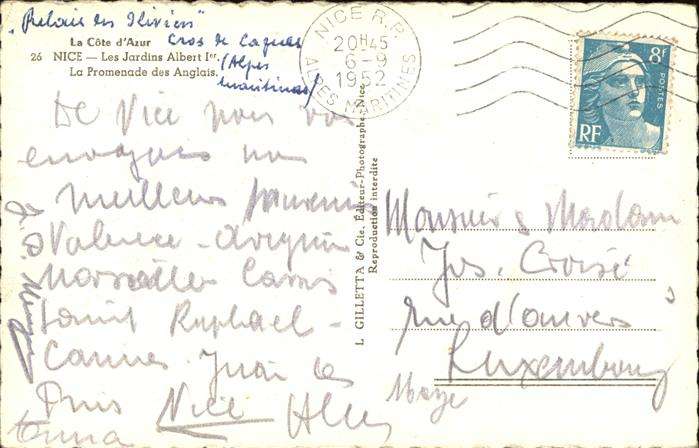 "Relais des
Cros de Cagnes
(Alpes
Maritimes)
La Côte d'Azur
26 NICE — Les Jardins Albert Ier.
La Promenade des Anglais.
NICE R.P.
20H45
6-9
1952
ALPES MARITIMES
8F
POSTES
RF
De Nice nous vous
envoyons nos
meilleurs souvenirs
Valence - Avignon
Marseille Cassis
Saint Raphael -
Cannes Juan les
Pins Nice
L. GILLETTA & Cie, Éditeur-Photographe, Nice
Reproduction interdite
Monsieur & Madame
Jos. Croisé
rue d'anvers
Luxembourg